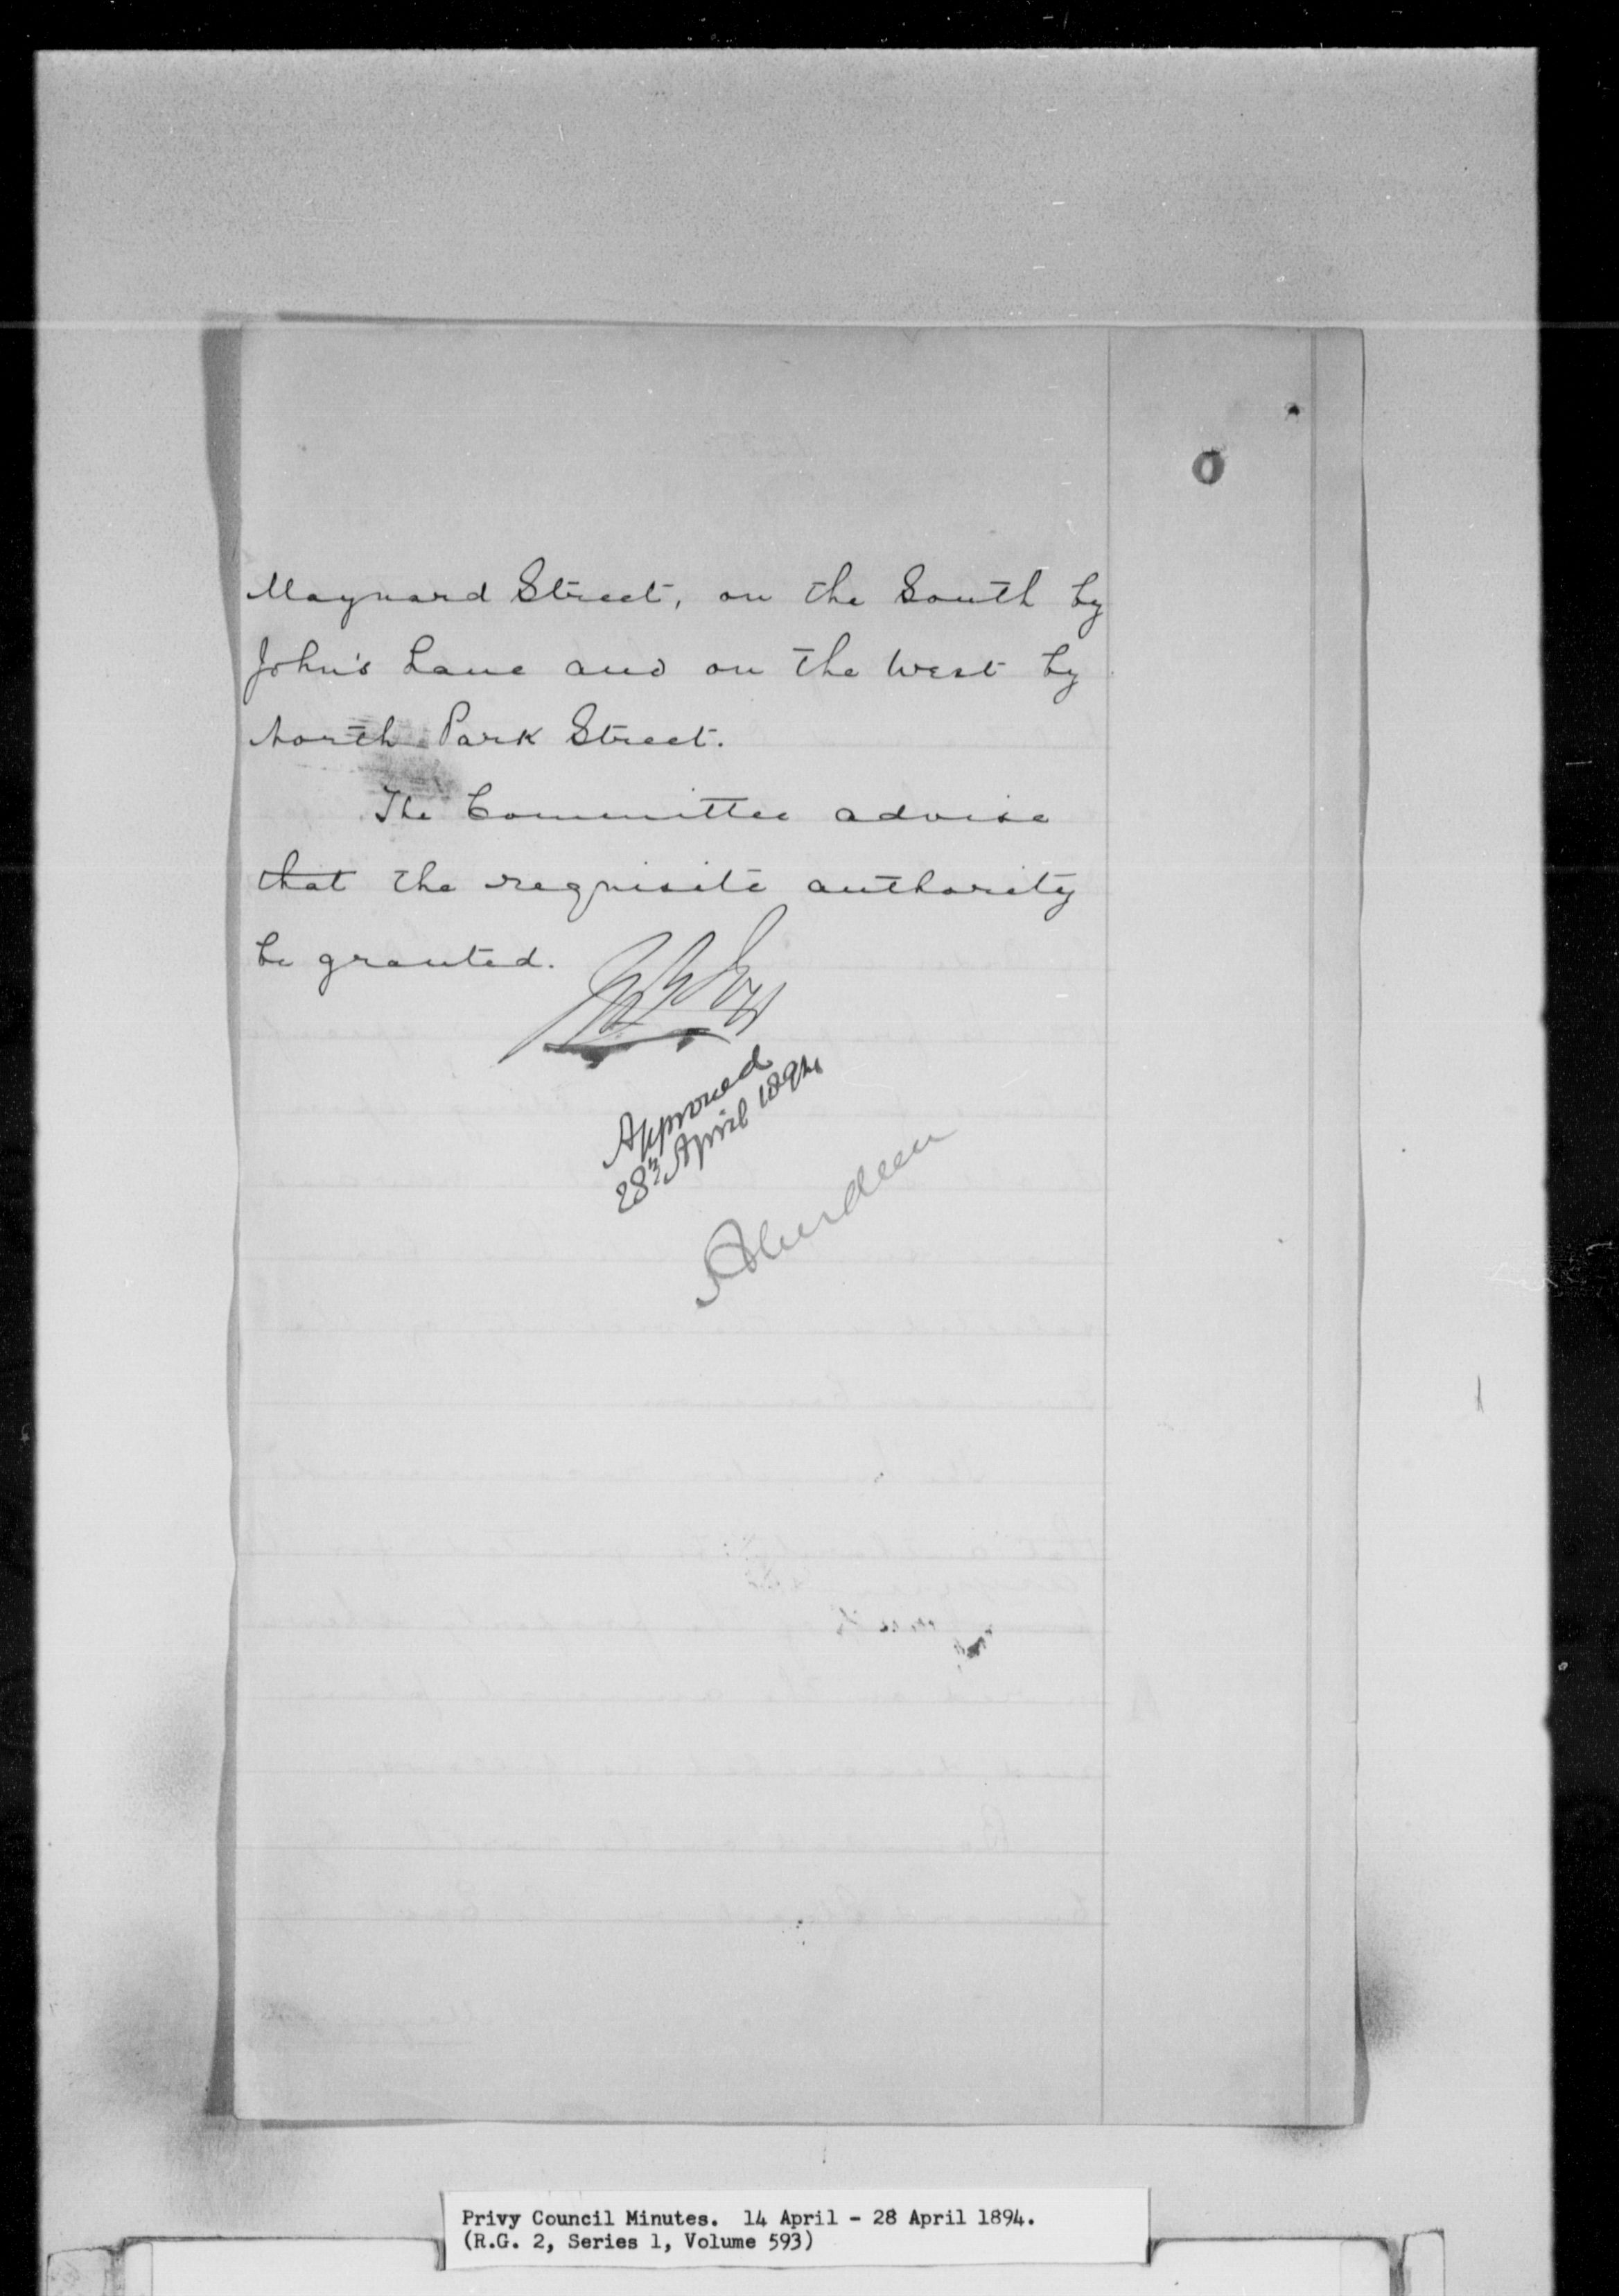 Maynard Street, on the South by
John's Lane and on the West by
North Park Street.
The Committee advise
that the requisite authority
be granted.
Approved
28th April 1894
Aberdeen
Privy Council Minutes. 14 April - 28 April 1894.
(R.G. 2, Series 1, Volume 593)